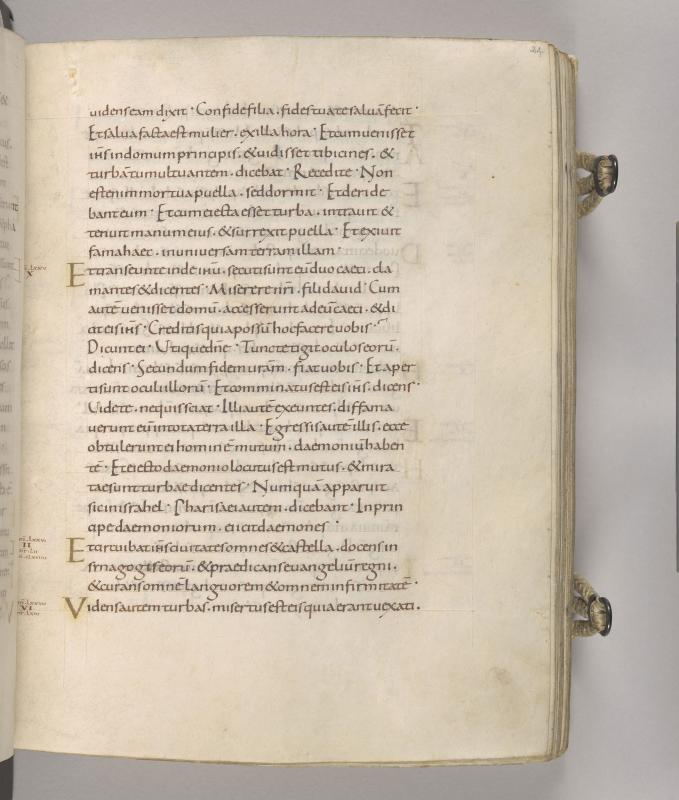 24
uidens eam dixit · Confide filia · fides tua te saluā fecit ·
Et salua facta est mulier · ex illa hora · Et cum uenisset
ih̄s in domum principis · & uidisset tibicines · &
turbā tumultuantem · dicebat · Recedite · Non
est enim mortua puella · sed dormit · Et deride
bant eum · Et cum eiecta esset turba · intrauit &
tenuit manum eius · & surrexit puella · Et exiuit
fama haec · in uniuersam terram illam ·
Et transeunte inde ih̄u · secuti sunt eū duo caeci · cla
mantes & dicentes · Miserere n̄ri · fili dauid · Cum
autē uenisset domū · accesserunt ad eū caeci · & di
cit eis ih̄s · Creditis quia possū hoc facere uobis ·
Dicunt ei · Utique dn̄e · Tunc tetigit oculos eorū ·
dicens · Secundum fidem ur̄am · fiat uobis · Et aper
ti sunt oculi illorū · Et comminatus est eis ih̄s · dicens ·
Uidete · ne quis sciat · Illi autē exeuntes · diffama
uerunt eū in tota terra illa · Egressis autē illis · ecce
obtulerunt ei hominē mutum · daemoniū haben
tē · Et eiecto daemonio locutus est mutus · & mira
tae sunt turbae dicentes · Numquā apparuit
sic in israhel · Pharisaei autem · dicebant · In prin
cipe daemoniorum · eicit daemones ·
Et circuibat ih̄s ciuitates omnes & castella · docens in
synagogis eorū · & praedicans euangeliū regni ·
& curans omnē languorem & omnem infirmitatē ·
Uidens autem turbas · misertus est eis quia erant uexati ·
X
II
VI